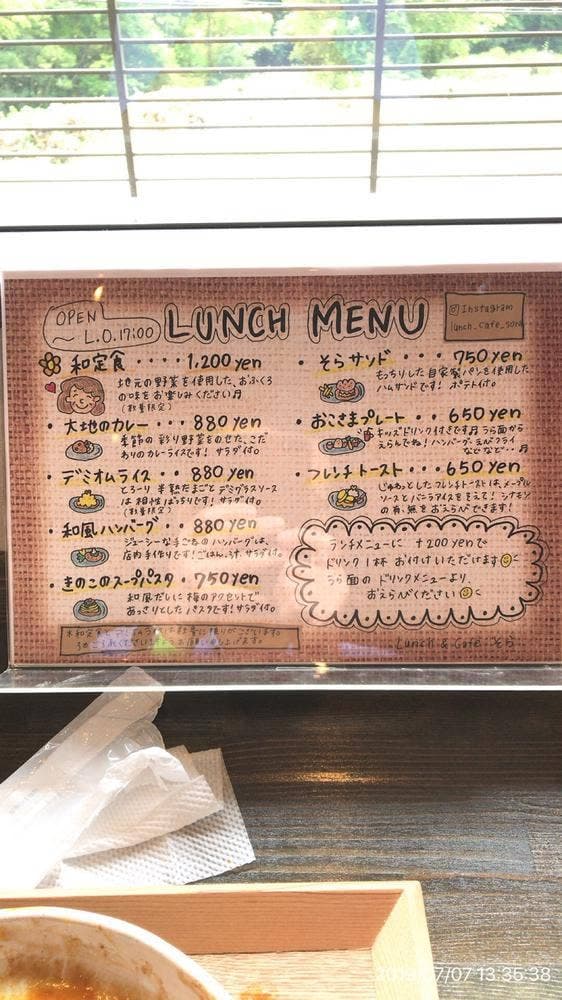 OPEN
~ L.O.17:00
LUNCH MENU
Instagram
lunch_cafe_sora
和定食 ・・・・ 1,200 yen
地元の野菜を使用した、おふくろ
の味をお楽しみください♫
(数量限定)
・大地のカレー ・・・ 880 yen
季節の彩り野菜をのせた、こだ
わりのカレーライスです! サラダ付。
(数量限定)
・デミオムライス ・・ 880 yen
とろーり半熟たまごとデミグラスソース
は相性ばっちりです! サラダ付。
・和風ハンバーグ ・・ 880 yen
ジューシーな手ごねのハンバーグは、
店内手作りです!ごはん、みそ汁、サラダ付。
・きのこのスープパスタ ・ 750 yen
和風だしに梅のアクセントで
あっさりとしたパスタです! サラダ付。
・そらサンド ・・・ 750 yen
もっちりした自家製パンを使用した
ハムサンドです! ポテト付。
・おこさまプレート ・・ 650 yen
キッズドリンク付きです♫ うら面から
えらんでね! ハンバーグ・エビフライ
などなど・・♫
・フレンチトースト ・・・ 650 yen
じゅわっとしたフレンチトーストは、メープル
ソースとバニラアイスをそえて! シナモン
の有無をおえらびできます!
ランチメニューに +200yenで
ドリンク1杯 お付けいただけます
うら面のドリンクメニューより、
おえらびください
Lunch & Cafe そら
2019/07/07 13:35:38